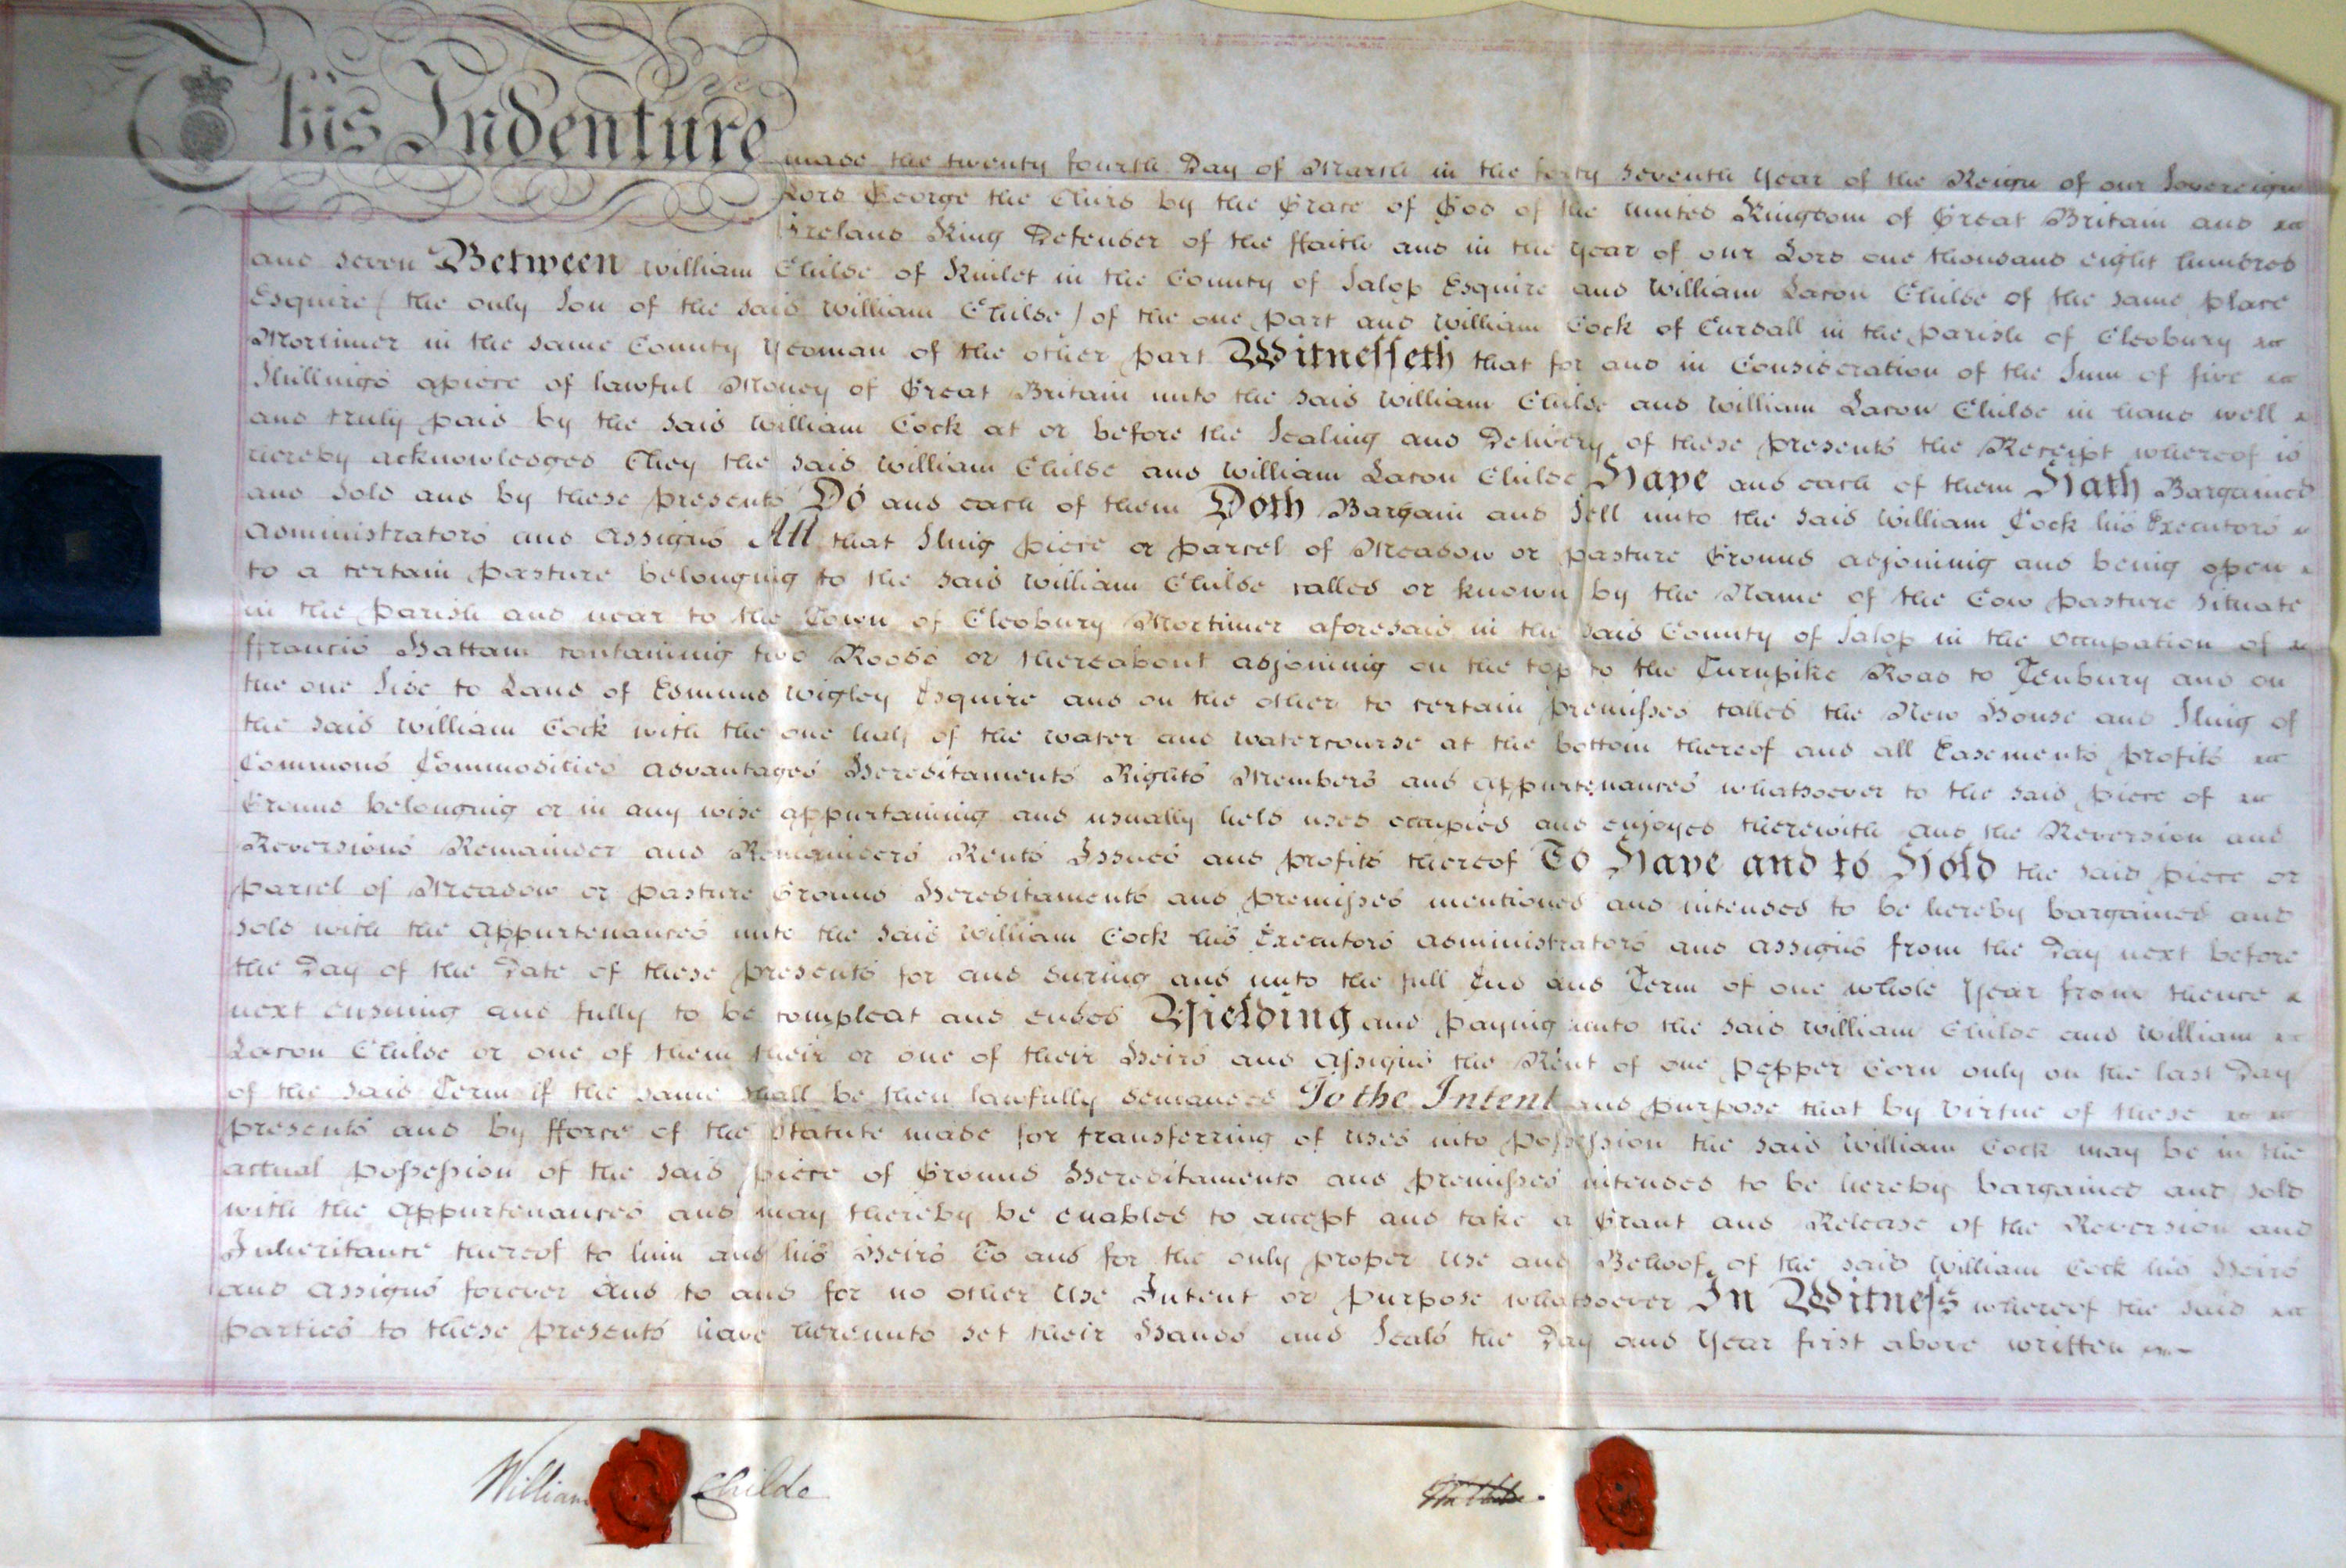 This Indenture made the twenty fourth Day of March in the forty seventh Year of the Reign of our Sovereign
Lord George the Third by the Grace of God of the United Kingdom of Great Britain and
Ireland King Defender of the ffaith and in the Year of our Lord one thousand eight hundred
and seven Between William Childe of Kinlet in the County of Salop Esquire and William Lacon Childe of the same place
Esquire (the only Son of the said William Childe) of the one part and William Cock of Cursall in the parish of Cleobury
Mortimer in the same County Yeoman of the other part Witnesseth that for and in Consideration of the Sum of five
Shillings apiece of lawful Money of Great Britain unto the said William Childe and William Lacon Childe in hand well
and truly paid by the said William Cock at or before the Sealing and Delivery of these presents the Receipt whereof is
hereby acknowledged They the said William Childe and William Lacon Childe Have and each of them Hath Bargained
and sold and by these presents Do and each of them Doth Bargain and Sell unto the said William Cock his Executors
administrators and assigns All that Sling piece or parcel of Meadow or pasture Ground adjoining and being open
to a certain pasture belonging to the said William Childe called or known by the Name of the Cow pasture situate
in the parish and near to the Town of Cleobury Mortimer aforesaid in the said County of Salop in the occupation of
ffrancis Hattam containing two Roods or thereabout adjoining on the top to the Turnpike Road to Tenbury and on
the one Side to Land of Edmund Wigley Esquire and on the other to certain premisses called the New House and Sling of
the said William Cock with the one half of the water and watercourse at the bottom thereof and all Easements profits
Commons Commodities advantages Hereditaments Rights Members and appurtenances whatsoever to the said piece of
Ground belonging or in any wise appurtaining and usually held used occupied and enjoyed therewith and the Reversion and
Reversions Remainder and Remainders Rents Issues and profits thereof To Have and to Hold the said piece or
parcel of Meadow or pasture Ground Hereditaments and premisses mentioned and intended to be hereby bargained and
sold with the appurtenances unto the said William Cock his Executors administrators and assigns from the Day next before
the Day of the Date of these presents for and during and unto the full End and Term of one whole Year from thence
next ensuing and fully to be compleat and ended Yielding and paying unto the said William Childe and William
Lacon Childe or one of them their or one of their Heirs and Assigns the Rent of one pepper Corn only on the last Day
of the said Term if the same shall be then lawfully demanded To the Intent and purpose that by virtue of these
presents and by fforce of the statute made for transferring of uses into possession the said William Cock may be in the
actual possession of the said piece of Ground Hereditaments and premisses intended to be hereby bargained and sold
with the appurtenances and may thereby be enabled to accept and take a Grant and Release of the Reversion and
Inheritance thereof to him and his Heirs To and for the only proper use and Behoof of the said William Cock his Heirs
and assigns forever and to and for no other Use Intent or purpose whatsoever In Witness whereof the said
parties to these presents have hereunto set their Hands and Seals the Day and Year first above written
William Childe